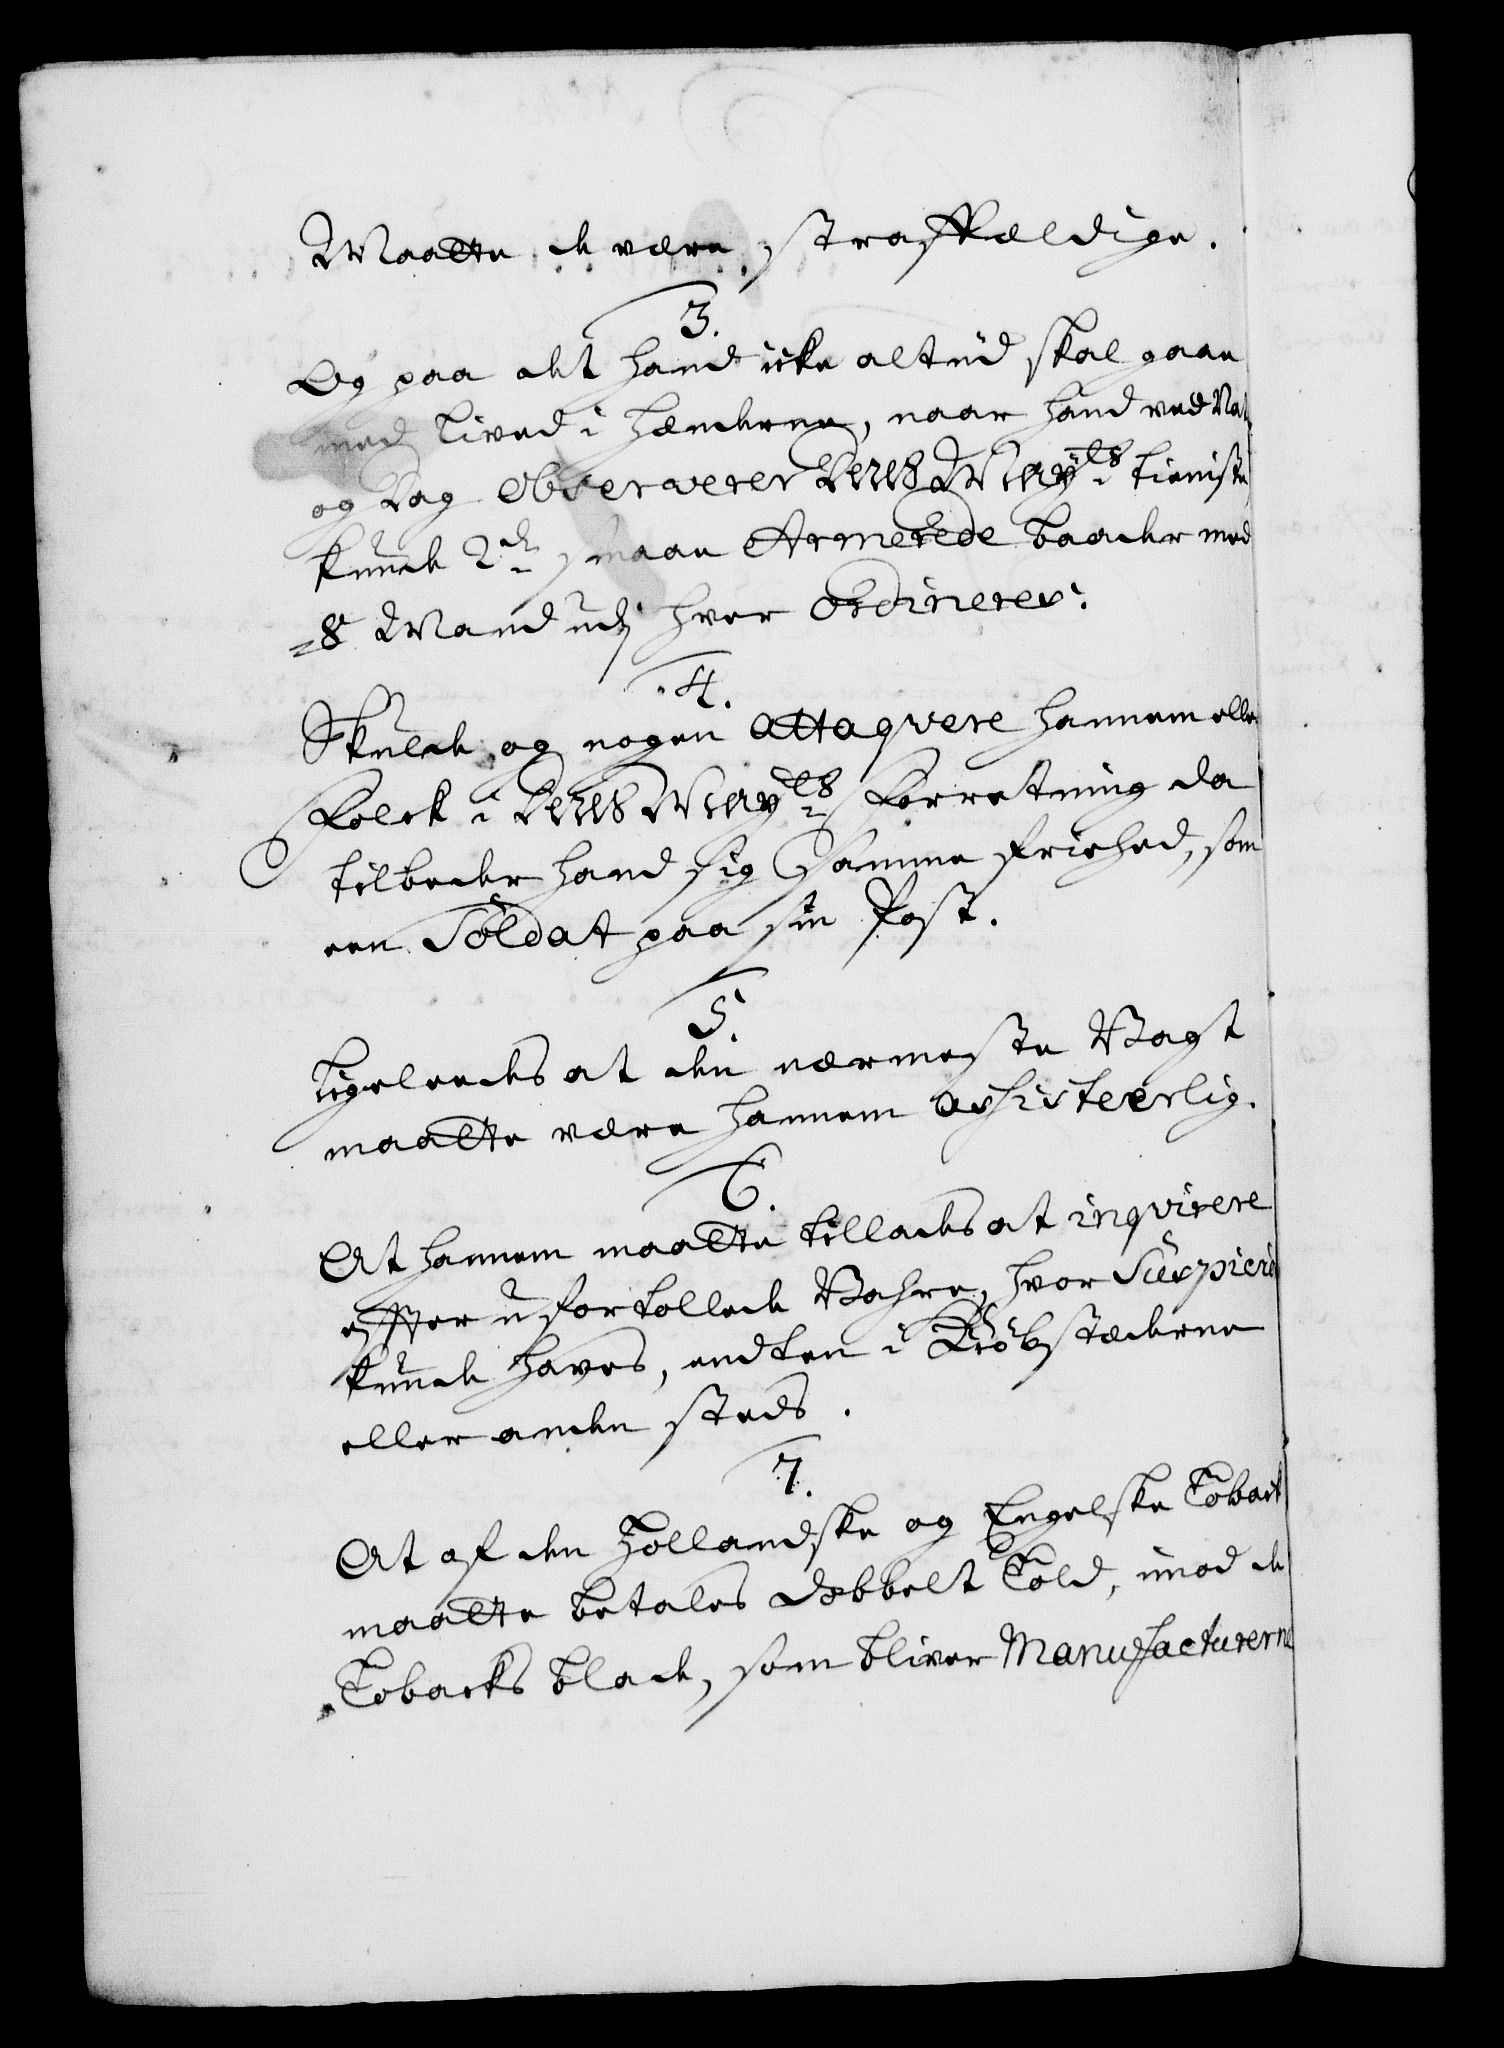 Maatte de være straffældige.
3.
Og paa det hand icke altiid skal gaae
med Lived i Hænderne, naar hand ved Nat
og Dag observerer Deres May:ts tieniste
kunde 2de smaae Armerede baader med
8 Mand udj hver Ordineres.
4.
Skulde og nogen attaqvere hannem eller
Folck i Deres May:ts Forretning da
tilbeder hand sig samme friehed, som
een Soldat paa sin Post.
5.
Ligeleedes at den nærmeste Vagt
maatte være hannem assisteerlig.
6.
At hannem maatte tillades at inqvirere
effter ufortollede Vahre, hvor Suspicio
kunde haves, endten i Kiøbstæderne
eller anden steds.
7.
At af den Hollandske og Engelske Toback
maatte betales dobbelt Told, imod de
Tobacks blade, som bliver Manufacturerne